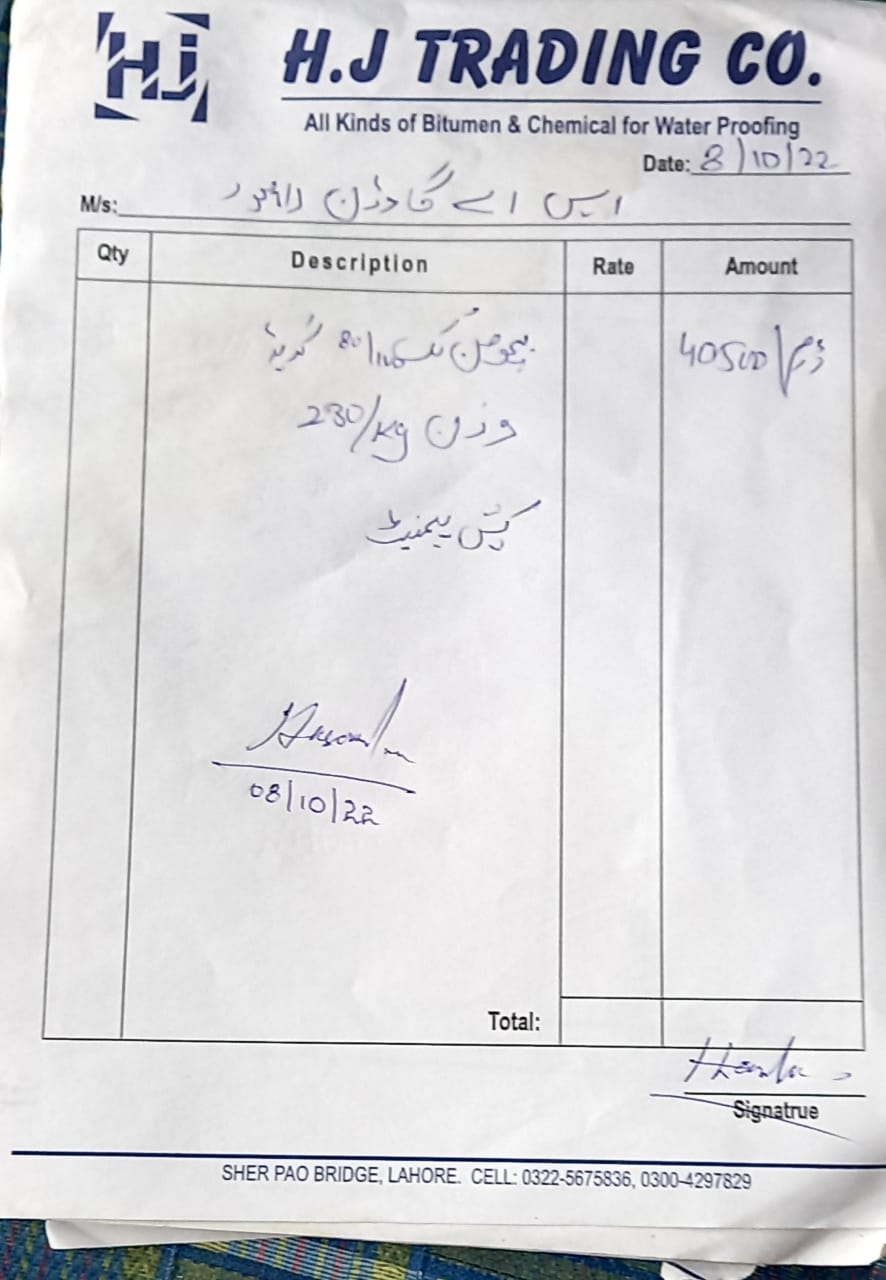 HJ
H.J TRADING CO.
All Kinds of Bitumen & Chemical for Water Proofing
Date: 8/10/22
M/s: ایس اے گارڈن لاہور
Qty Description Rate Amount
بچومن 80/100 گریڈ 40500/ ڈرم
وزن 230/kg
کیش پیمنیٹ
08/10/22
Total:
Signatrue
SHER PAO BRIDGE, LAHORE. CELL: 0322-5675836, 0300-4297829